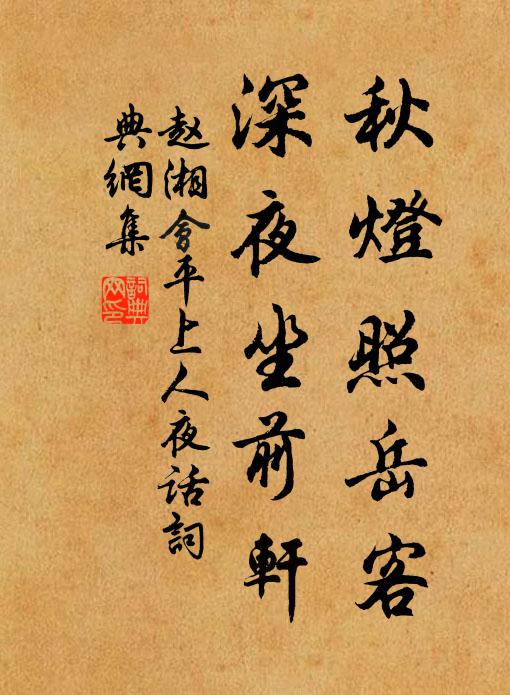 秋燈照岳客
深夜坐前軒
赵湘會平上人夜话詞
典網集
詞典网印